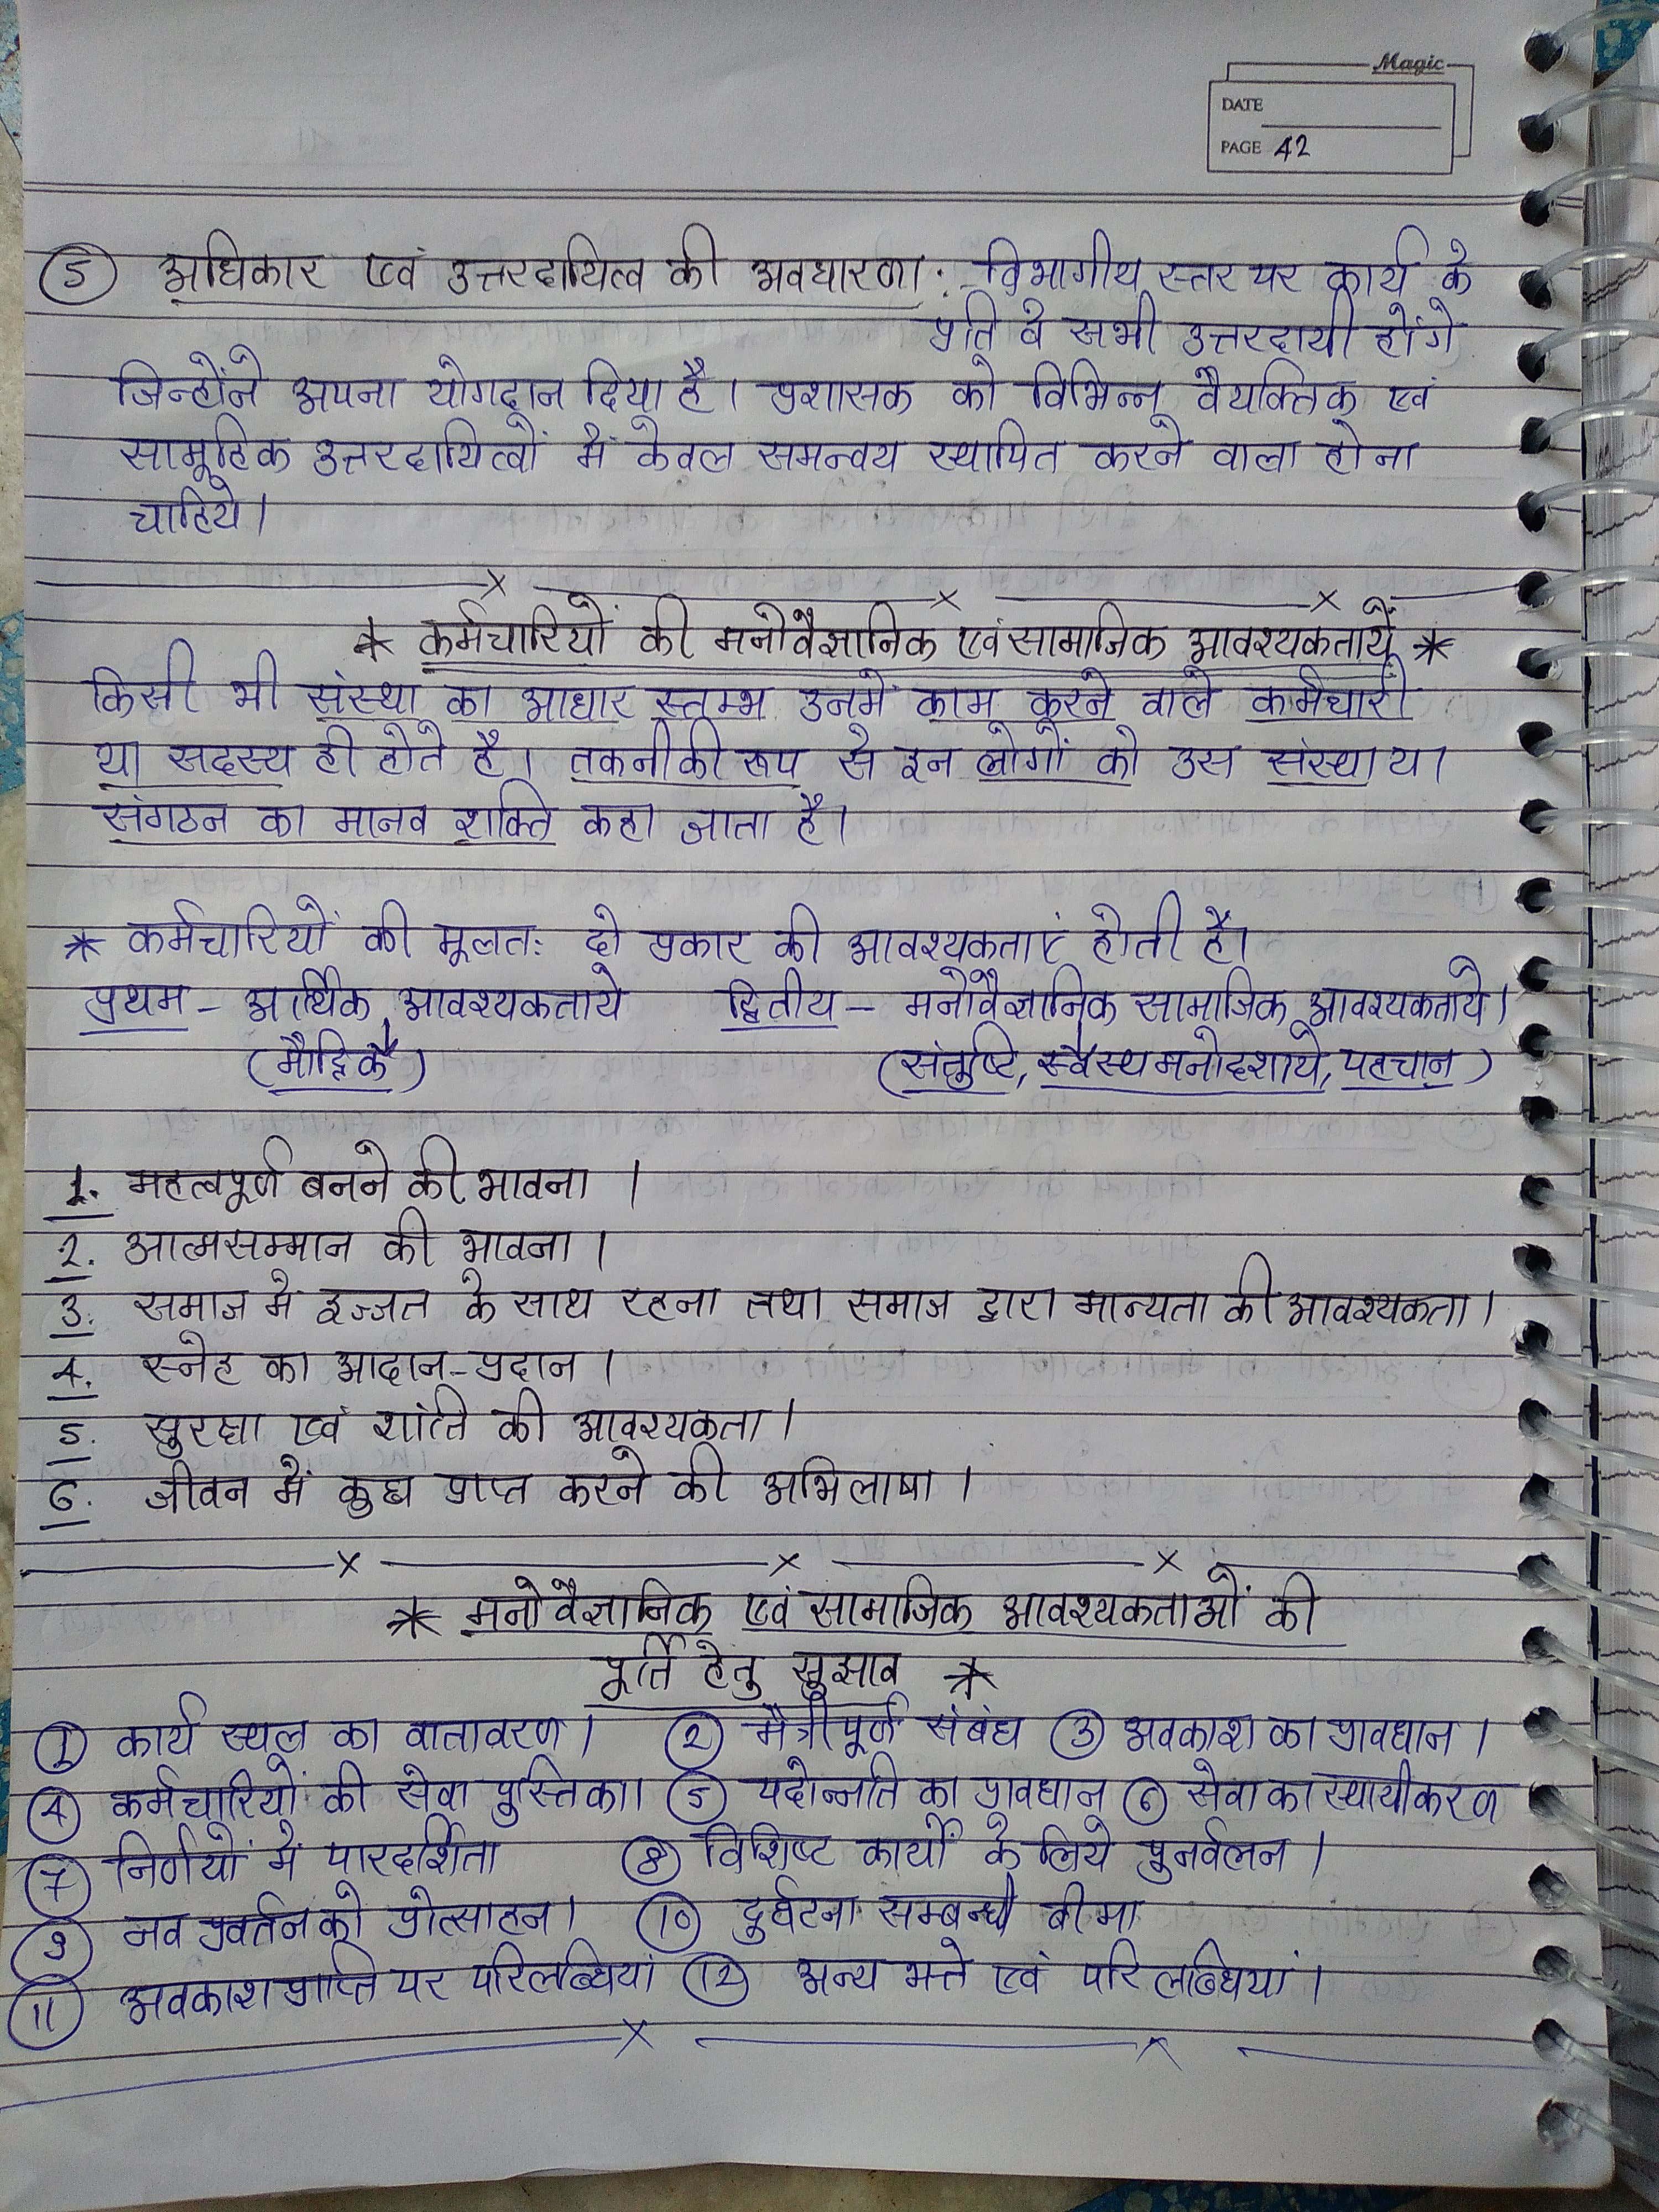 Magic
DATE
PAGE 42
⑤ अधिकार एवं उत्तरदायित्व की अवधारणा :- विभागीय स्तर पर कार्य के
प्रति वे सभी उत्तरदायी होंगे
जिन्होंने अपना योगदान दिया है। प्रशासक को विभिन्न वैयक्तिक एवं
सामूहिक उत्तरदायित्वों में केवल समन्वय स्थापित करने वाला होना
चाहिये।
* कर्मचारियों की मनोवैज्ञानिक एवं सामाजिक आवश्यकतायें *
किसी भी संस्था का आधार स्तम्भ उनमें काम करने वाले कर्मचारी
या सदस्य ही होते है। तकनीकी रूप से इन लोगों को उस संस्था या
संगठन का मानव शक्ति कहा जाता है।
* कर्मचारियों की मूलतः दो प्रकार की आवश्यकताएं होती हैं।
प्रथम - आर्थिक आवश्यकताये द्वितीय - मनोवैज्ञानिक सामाजिक आवश्यकताये।
(मौद्रिक) (संतुष्टि, स्वस्थ मनोदशाये, पहचान)
1. महत्वपूर्ण बनने की भावना।
2. आत्मसम्मान की भावना।
3. समाज में इज्जत के साथ रहना तथा समाज द्वारा मान्यता की आवश्यकता।
4. स्नेह का आदान-प्रदान।
5. सुरक्षा एवं शांति की आवश्यकता।
6. जीवन में कुछ प्राप्त करने की अभिलाषा।
* मनोवैज्ञानिक एवं सामाजिक आवश्यकताओं की
पूर्ति हेतु सुझाव *
① कार्य स्थल का वातावरण। ② मैत्रीपूर्ण संबंध ③ अवकाश का प्रावधान।
④ कर्मचारियों की सेवा पुस्तिका। ⑤ पदोन्नति का प्रावधान ⑥ सेवा का स्थायीकरण
⑦ निर्णयों में पारदर्शिता ⑧ विशिष्ट कार्यों के लिये पुनर्वलन।
⑨ नव प्रवर्तन को प्रोत्साहन। ⑩ दुर्घटना सम्बन्धी बीमा
⑪ अवकाश प्राप्ति पर परिलब्धियां ⑫ अन्य भत्ते एवं परिलब्धियां।